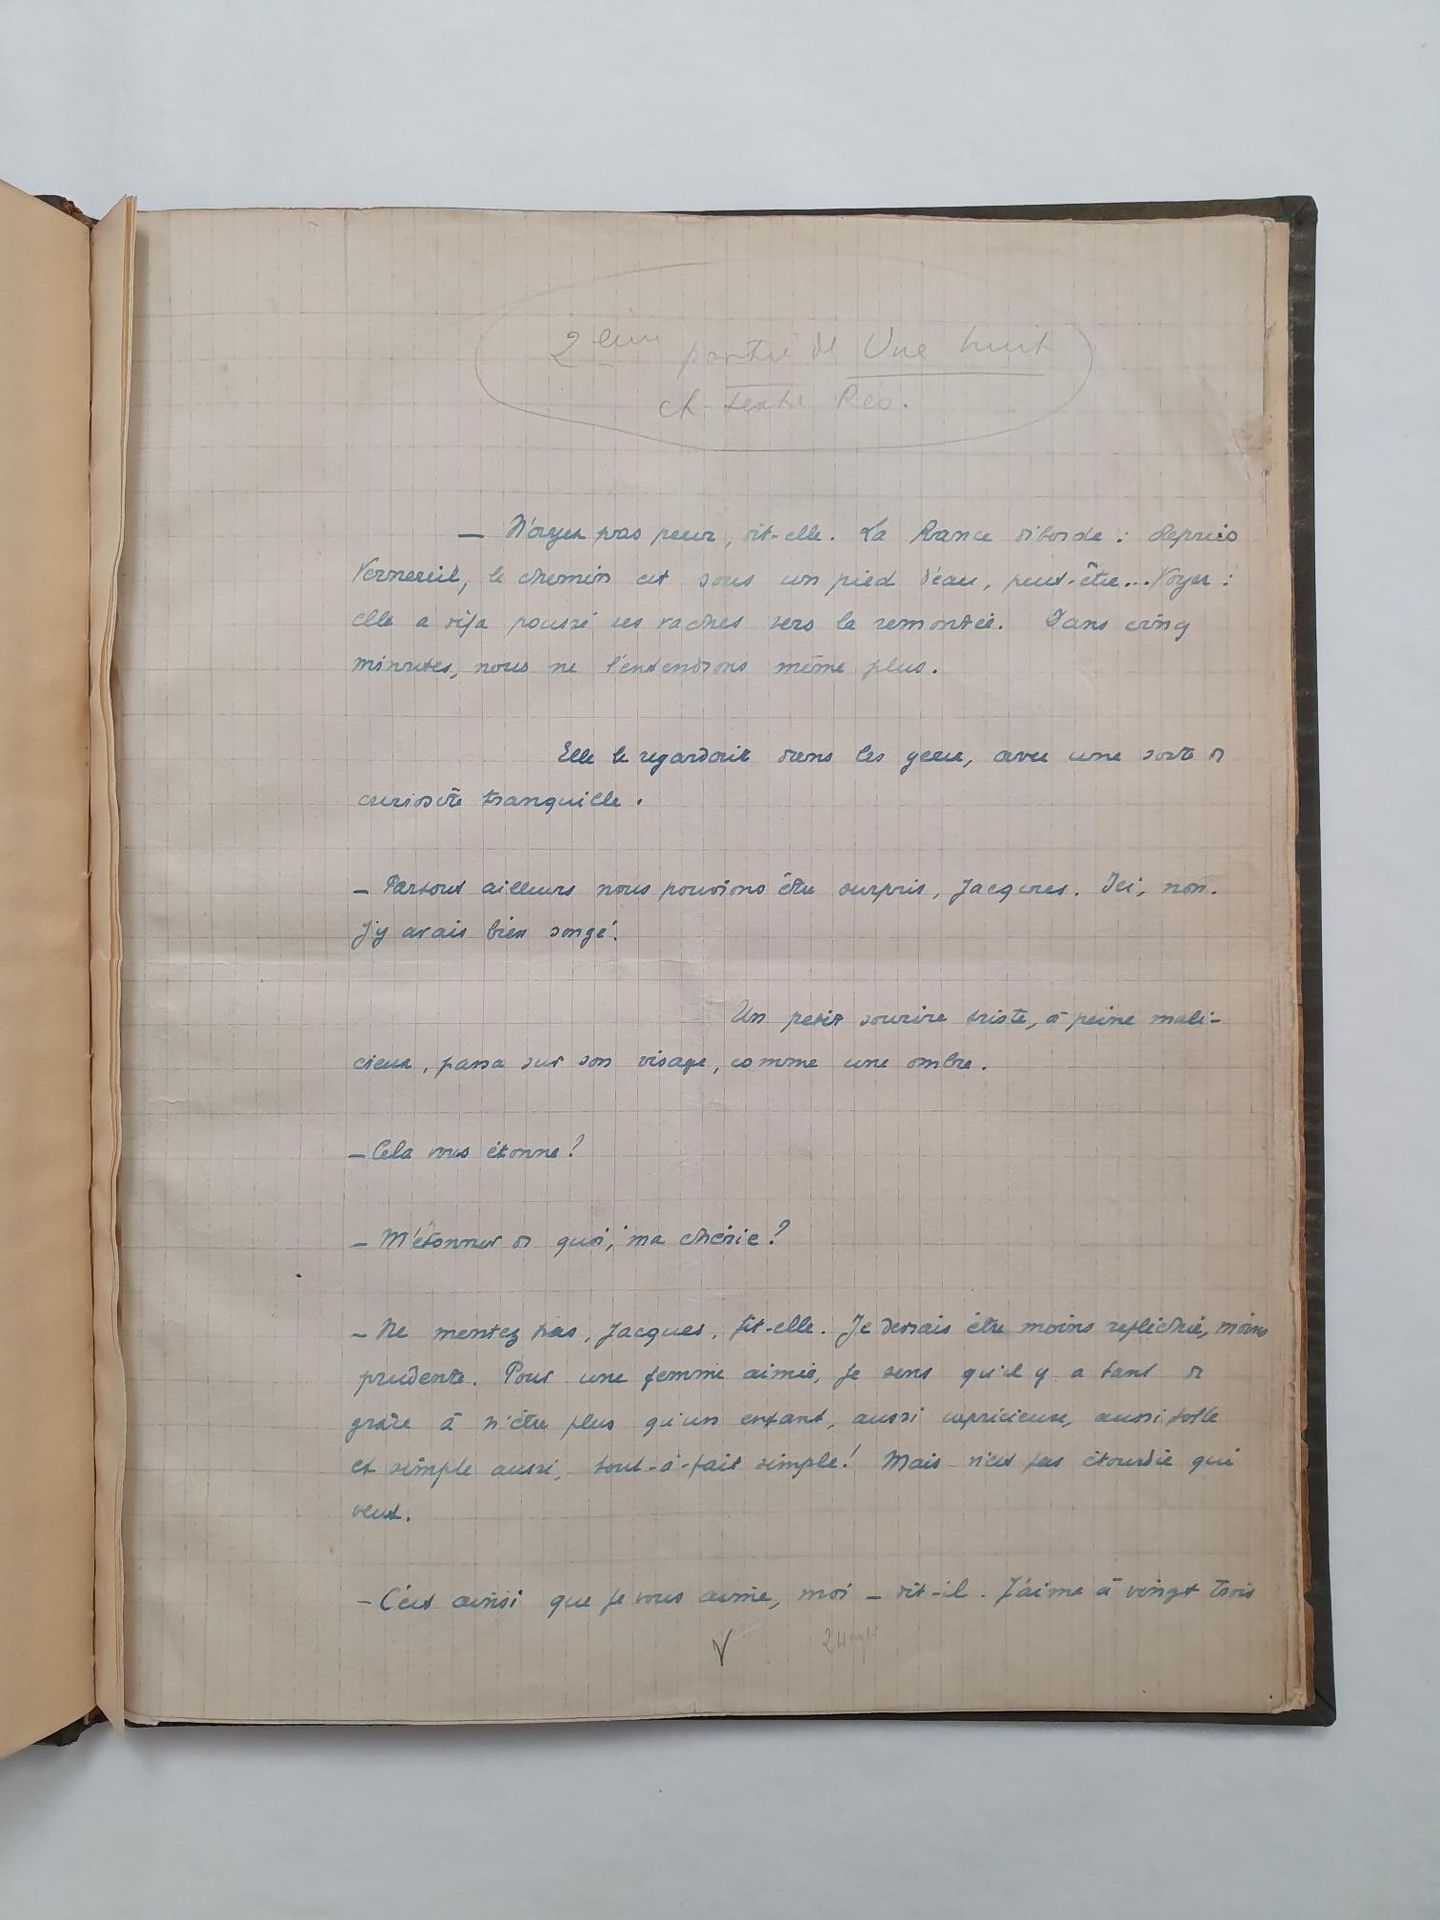 2ème partie de Une nuit
ch. texte Réo.
— N'ayez pas peur, dit-elle. La Rance déborde : depuis
Verneuil, le chemin est sous un pied d'eau, peut-être... Voyez :
elle a déjà poussé ses vaches vers la remontée. Dans cinq
minutes, nous ne l'entendrons même plus.
Elle le regardait dans les yeux, avec une sorte de
curiosité tranquille.
— Partout ailleurs nous pouvions être surpris, Jacques. Ici, non.
J'y avais bien songé.
Un petit sourire triste, à peine mali-
cieux, passa sur son visage, comme une ombre.
— Cela vous étonne ?
— M'étonner de quoi, ma chérie ?
— Ne mentez pas, Jacques, fit-elle. Je devrais être moins réfléchie, moins
prudente. Pour une femme aimée, je sens qu'il y a tant de
grâce à n'être plus qu'un enfant, aussi capricieuse, aussi folle
et simple aussi, tout-à-fait simple ! Mais n'est pas étourdie qui
veut.
— C'est ainsi que je vous aime, moi — dit-il. J'aime à vingt trois